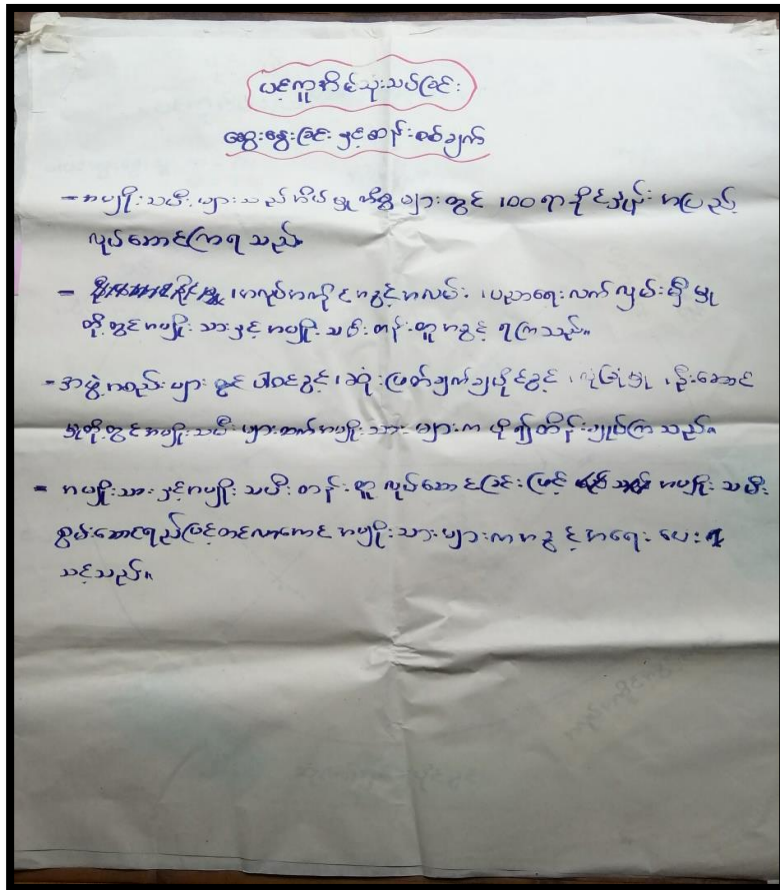 ပင့်ကူအိမ်သုံးသပ်ခြင်း
ဆွေးနွေးခြင်း နှင့်ဆန်းစစ်ချက်
- အမျိုးသမီးများသည်အိမ်မှုကိစ္စများတွင် 100 ရာခိုင်နှုန်း အပြည့်
လုပ်ဆောင်ကြရသည်။
- ၊အလုပ်အကိုင်အခွင့်အလမ်း ၊ပညာရေးလက်လှမ်းမှီမှု
တို့တွင်အမျိုးသားနှင့်အမျိုးသမီးတန်းတူအခွင့်ရကြသည်။
- အဖွဲ့အစည်းများတွင်ပါဝင်ခွင့်၊ဆုံးဖြတ်ချက်ချပိုင်ခွင့် ၊လုံခြုံမှု ၊ဦးဆောင်
မှုတို့တွင်အမျိုးသမီးများထက်အမျိုးသားများက ပို၍ထိန်းချုပ်ကြသည်။
- အမျိုးသားနှင့်အမျိုးသမီးတန်းတူလုပ်ဆောင်ခြင်းဖြင့် အမျိုးသမီး
စွမ်းဆောင်ရည်မြင့်တင်လာအောင် အမျိုးသားများကအခွင့်အရေးပေး
သင့်သည်။